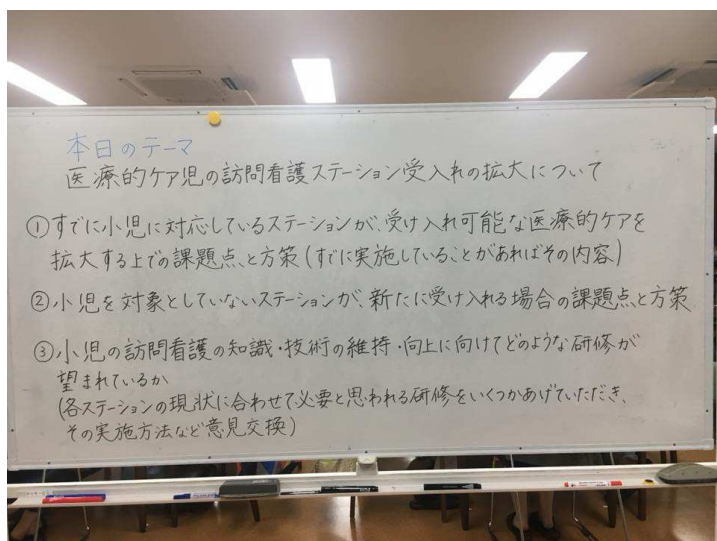 本日のテーマ
医療的ケア児の訪問看護ステーション受入れの拡大について
①すでに小児に対応しているステーションが、受け入れ可能な医療的ケアを
拡大する上での課題点と方策(すでに実施していることがあればその内容)
②小児を対象としていないステーションが、新たに受け入れる場合の課題点と方策
③小児の訪問看護の知識・技術の維持・向上に向けてどのような研修が
望まれているか
(各ステーションの現状に合わせて必要と思われる研修をいくつかあげていただき、
その実施方法など意見交換)